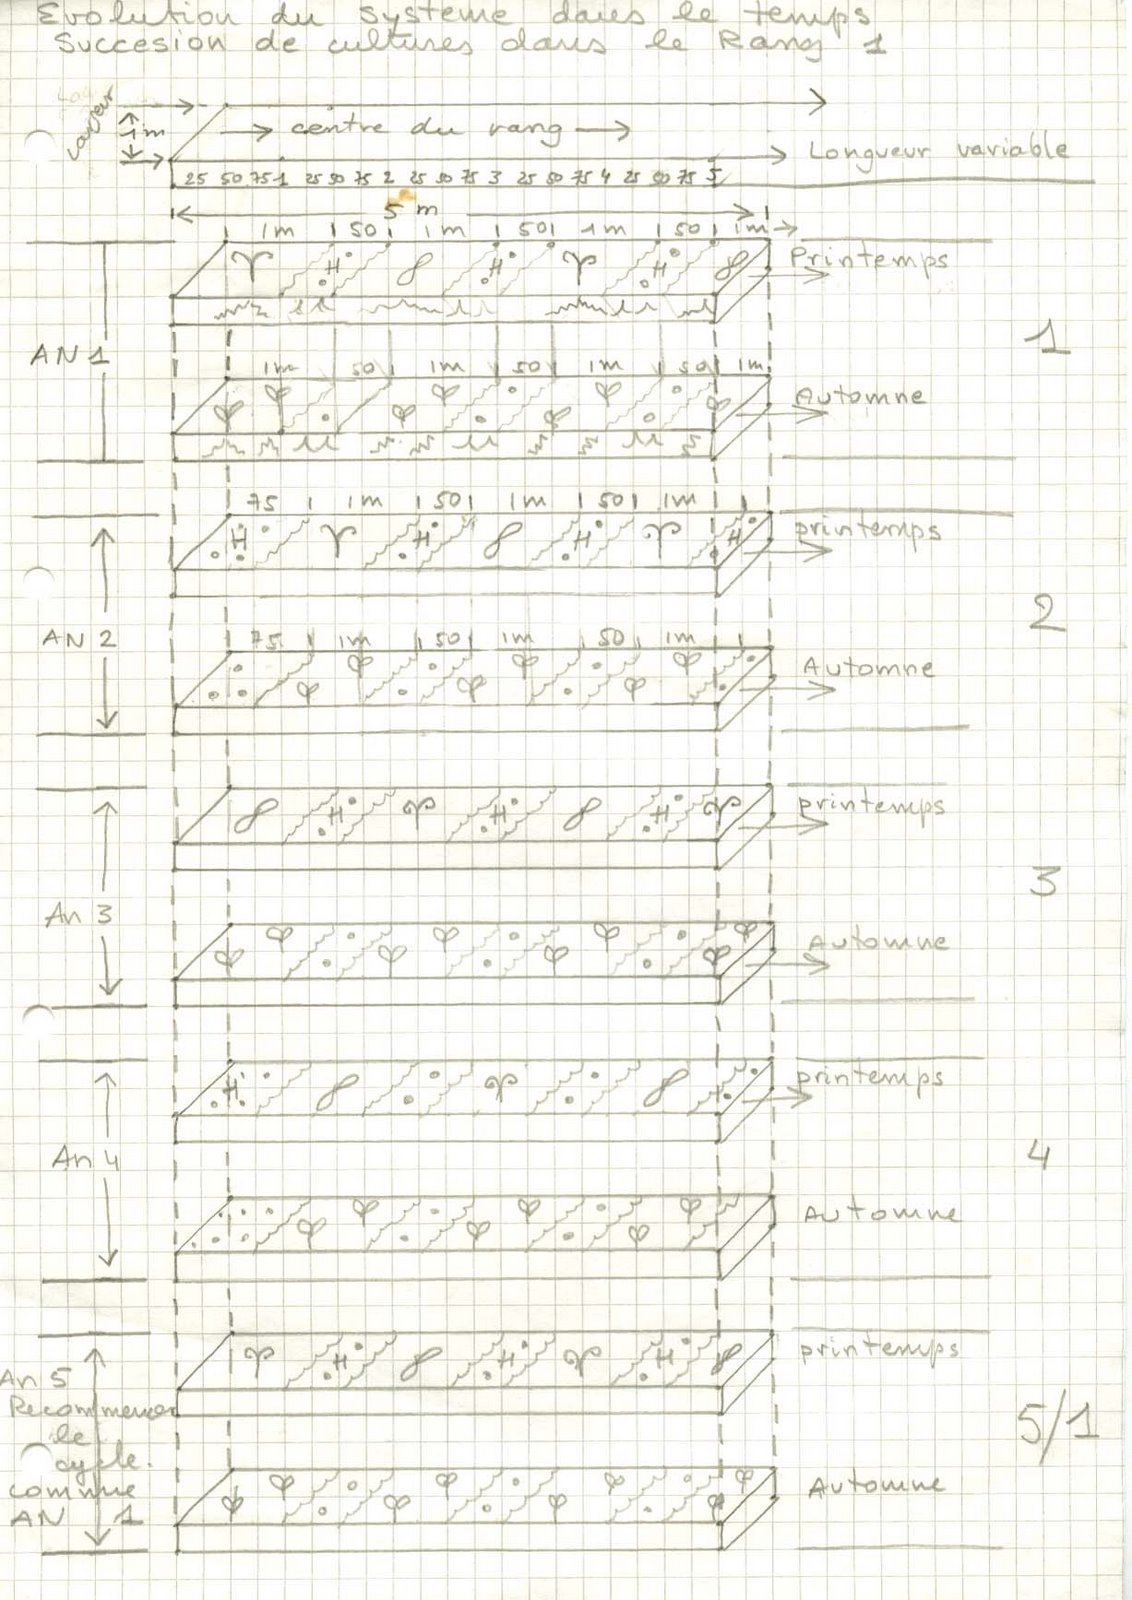 Evolution du systeme dans le temps
Succesion de cultures dans le Rang 1
1m
centre du rang
Longueur variable
25 50 75 1 25 50 75 2 25 50 75 3 25 50 75 4 25 50 75 5
5 m
1m 50 1m 50 1m 50 1m
H H H
Printemps
AN 1
1
1m 50 1m 50 1m 50 1m
Automne
75 1m 50 1m 50 1m
H H H H
printemps
AN 2
2
75 1m 50 1m 50 1m
Automne
H H H
printemps
An 3
3
Automne
H
printemps
An 4
4
Automne
H H H
printemps
An 5
Recommencer
le
cycle.
comme
AN 1
5/1
Automne